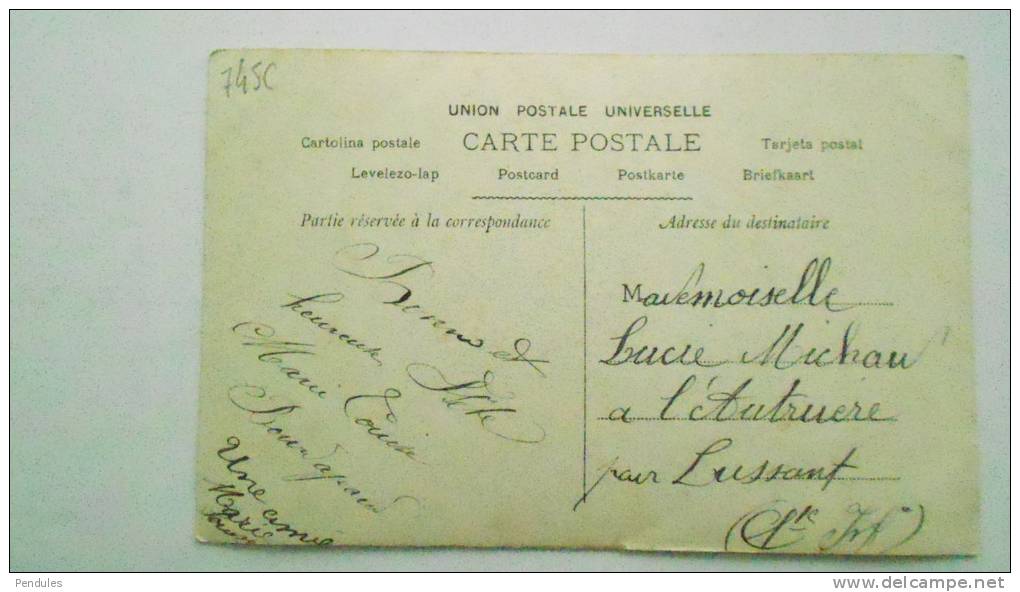 745C
UNION POSTALE UNIVERSELLE
CARTE POSTALE
Cartolina postale
Tarjeta postal
Levelezo-lap
Postcard
Postkarte
Briefkaart
Partie réservée à la correspondance
Bonne et
heureuse fête
Marie Louise
Une amie
Marie
Adresse du destinataire
Mademoiselle
Lucie Michau
a l'Autruere
par Lussant
(Cte Infe)
Pendules
www.delcampe.net